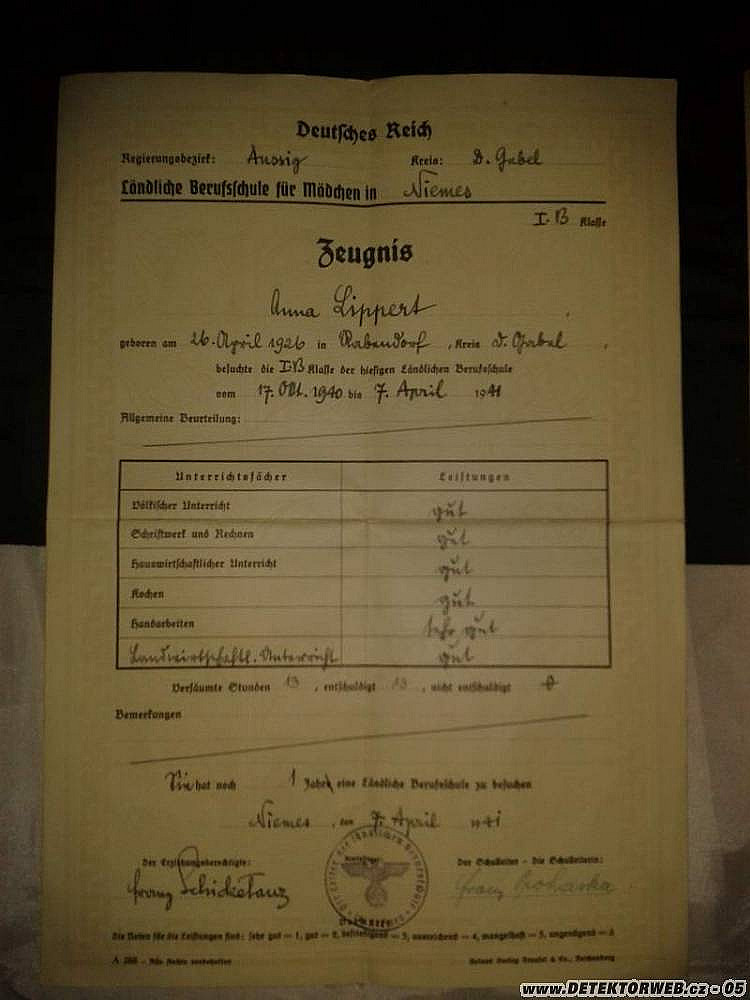 Deutsches Reich
Regierungsbezirk: Aussig Kreis: D. Gabel
Ländliche Berufsschule für Mädchen in Niemes
I. B Klasse
Zeugnis
Anna Lippert
geboren am 26. April 1926 in Rabendorf, Kreis D. Gabel,
besuchte die I.B Klasse der hiesigen Ländlichen Berufsschule
vom 17. Okt. 1940 bis 7. April 1941
Allgemeine Beurteilung:
Unterrichtsfächer Leistungen
Völkischer Unterricht gut
Schriftwerk und Rechnen gut
Hauswirtschaftlicher Unterricht gut
Kochen gut
Handarbeiten sehr gut
Landwirtschaftl. Unterricht gut
Versäumte Stunden 13, entschuldigt 13, nicht entschuldigt 0
Bemerkungen
Sie hat noch 1 Jahr eine Ländliche Berufsschule zu besuchen
Niemes, den 7. April 1941
Der Erziehungsberechtigte: Der Schulleiter - Die Schulleiterin:
Franz Schicketanz Franz
Die Noten für die Leistungen sind: sehr gut = 1, gut = 2, befriedigend = 3, ausreichend = 4, mangelhaft = 5, ungenügend = 6
A 288 - Alle Rechte vorbehalten Roland Verlag & Co., Reichenberg
www.DETEKTORWEB.cz - 05